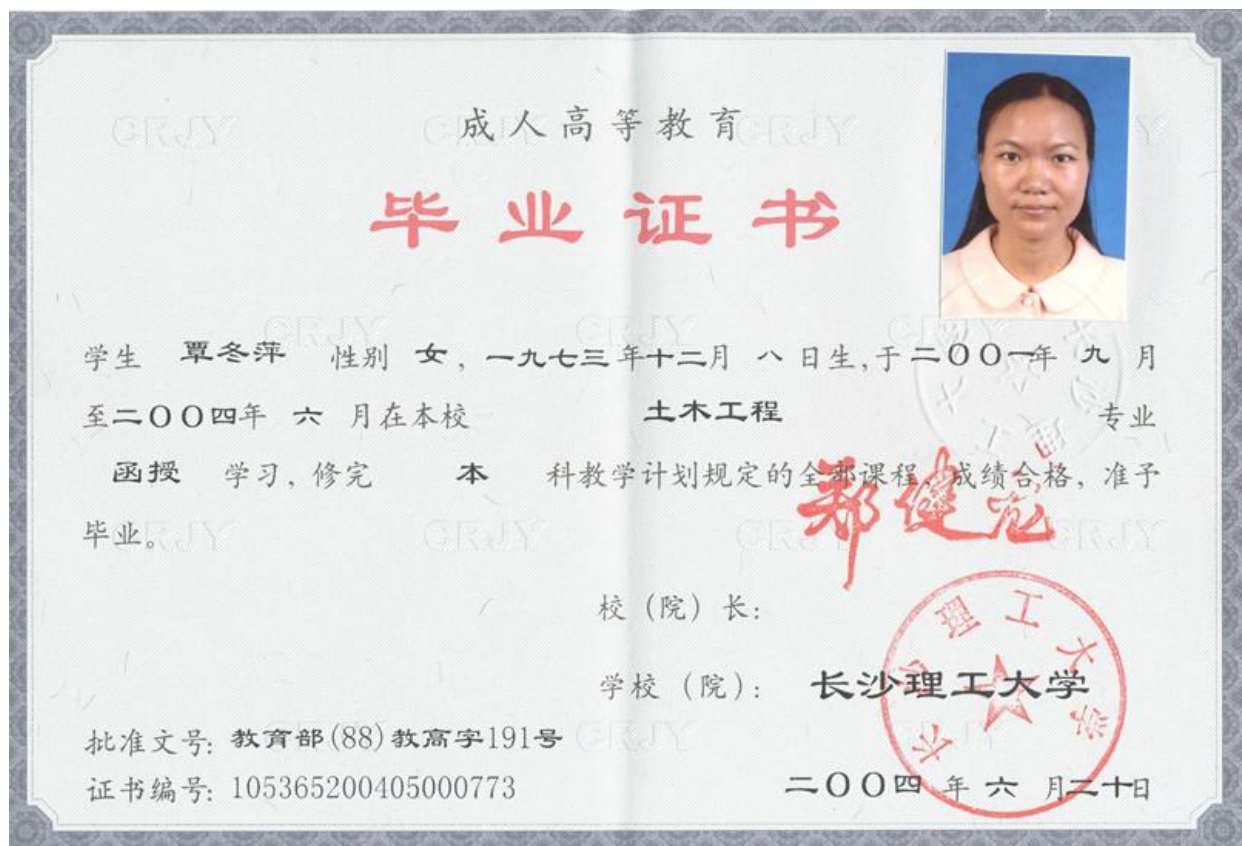 成人高等教育
毕业证书
学生 覃冬萍 性别 女, 一九七三年十二月 八 日生,于二〇〇一年 九 月
至二〇〇四年 六 月在本校 土木工程 专业
函授 学习, 修完 本 科教学计划规定的全部课程, 成绩合格, 准予
毕业。
郑健龙
校 (院) 长:
学校 (院): 长沙理工大学
长沙理工大学
批准文号: 教育部(88)教高字191号
证书编号: 105365200405000773
二〇〇四 年 六 月二十日
GRJY